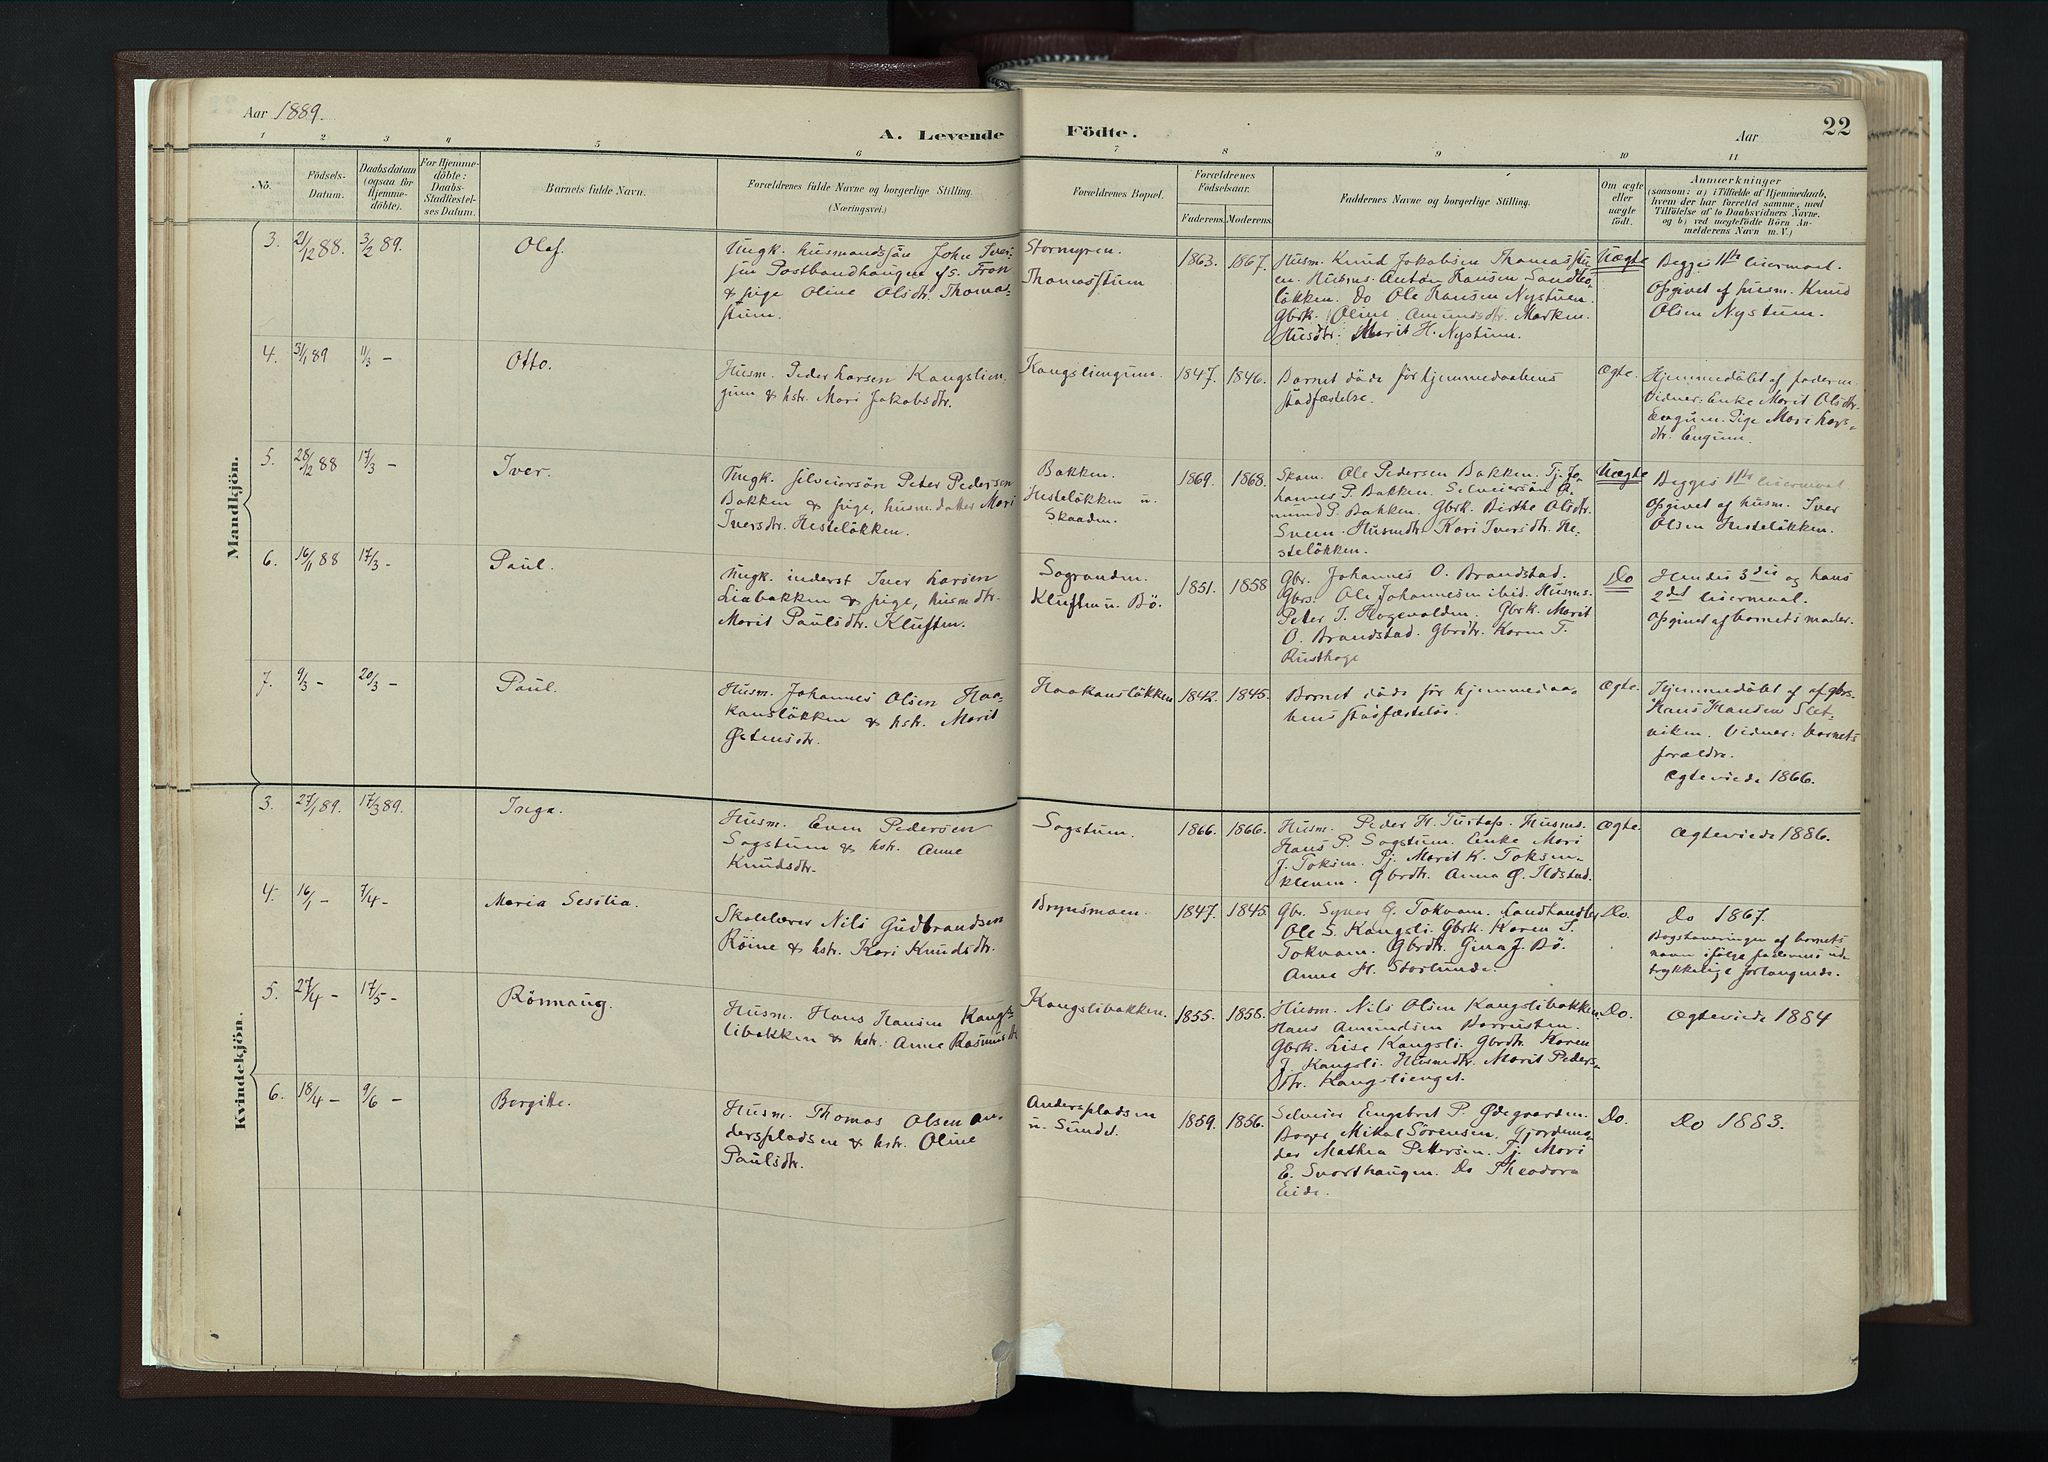 Aar 1889.
A. Levende Födte.
Aar
22
1 2 3 4 5 6 7 8 9 10 11
No.
Födsels-
Datum.
Daabsdatum
(ogsaa for
Hjemme-
döbte).
For Hjemme-
döbte:
Daabs-
Stadfæstel-
ses Datum.
Barnets fulde Navn.
Forældrenes fulde Navne og borgerlige Stilling.
(Næringsvei.)
Forældrenes Bopæl.
Forældrenes
Födselsaar.
Faderens. Moderens.
Faddernes Navne og borgerlige Stilling.
Om ægte
eller
uægte
födt.
Anmærkninger
(saasom: a) i Tilfælde af Hjemmedaab,
hvem der har forrettet samme, med
Tilföielse af to Daabsvidners Navne,
og b) ved uægtefödte Börn An-
melderens Navn m. V.)
Mandkjön.
3. 21/12 88. 3/2 89. Olaf.
Ungk. husmandssön John Iver-
sen Postbaudhaugen ys. Fron
& pige Oline Olsdtr. Thomas-
stuen.
Stormyren.
Thomasstuen
1863. 1867.
Husm. Knud Jakobsen Thomasstu
en. Husms. Anton Hansen Sandbo
løkken. Do Ole Hansen Nystuen.
Gbrk. Oline Amundsdtr. Marken.
Husdtr. Marit H. Nystuen.
Uægte
Begges 1ste leiermaal.
Opgivet af husm. Knud
Olsen Nystuen.
4. 3/1 89 11/3 - Otto.
Husm. Peder Larsen Kangslien-
gen & hstr. Mari Jakobsdtr.
Kangsliengen.
1847. 1846.
Barnet döde för hjemmedaabens
stadfæstelse.
Ægte.
Hjemmedöbt af faderen.
Vidner: Enke Marit Olsdtr.
Engum. Pige Mari Lars-
dtr. Engum.
5. 28/12 88 17/3 - Iver.
Ungk. selveiersön Peter Pedersen
Bakken & pige, husm.datter Mari
Iversdtr. Hesteløkken.
Bakken.
Hesteløkken u.
Skaaden.
1869. 1868.
Skom. Ole Pedersen Bakken. Tj. Jo-
hannes P. Bakken. Selveiersön A-
mund P. Bakken. Gbrk. Birthe Olsdtr.
Sveen. Husmdtr. Kari Iversdtr. He-
steløkken.
Uægte
Begges 1ste leiermaal.
Opgivet af husm. Iver
Olsen Hesteløkken.
6. 16/11 88 17/3 - Paul.
Ungk. inderst Iver Larsen
Liabakken & pige, husmdtr.
Marit Paulsdtr. Kluften.
Sogranden.
Kluften u. Bö.
1851. 1858
Gbr. Johannes O. Brandstad.
Gbrs. Ole Johannesen ibid. Husms.
Peter I. Hagevolden. Gbrk. Marit
O. Brandstad. Gbrdtr. Karen T.
Rusthage
Do
Hendes 3die og hans
2det leiermaal.
Opgivet af barnets moder.
7. 9/3 - 20/3 - Paul.
Husm. Johannes Olsen Haa-
kansløkken & hstr. Marit
Østensdtr.
Haakansløkken
1842. 1845.
Barnet döde för hjemmedaa-
bens stadfæstelse.
Ægte.
Hjemmedöbt af af gbrs.
Hans Hansen Slet-
viken. Vidner: barnets
forældre.
Ægteviede 1866.
Kvindekjön.
3. 27/1 89. 17/3 89. Inga.
Husm. Even Pedersen
Sogstuen & hstr. Anne
Knudsdtr.
Sogstuen.
1866. 1866.
Husm. Peder H. Turtop. Husms.
Hans P. Sogstuen. Enke Mari
J. Toksen. Pj. Marit K. Toksen-
kleven. Gbrdtr. Anna Ø. Ildstad.
Ægte.
Ægteviede 1886.
4. 16/1 - 7/4 - Maria Sesilia.
Skolelærer Nils Gudbrandsen
Röine & hstr. Kari Knudsdtr.
Brynsmoen.
1847. 1845.
Gbr. Syver G. Tokvam. Landhandler
Ole S. Kangsli. Gbrk. Karen T.
Tokvam. Gbrdtr. Gina J. Bö.
Anne H. Storlunde.
Do.
Do 1867.
Bogstaveringen af barnets
navn ifölge faderens ud-
trykkelige forlangende.
5. 27/4 - 17/5 - Rönnaug.
Husm. Hans Hansen Kangs-
libakken & hstr. Anne Rasmusdtr
Kangslibakken.
1855. 1858.
Husm. Nils Olsen Kangslibakken.
Hans Amundsen Barrusten.
Gbrk. Lise Kangsli. Gbrdtr. Karen
J. Kangsli. Husmdtr. Marit Peders-
dtr. Kangslienget.
Do.
Ægteviede 1884
6. 18/4 - 9/6 - Bergitte.
Husm. Thomas Olsen An-
derspladsen & hstr. Oline
Paulsdtr.
Anderspladsen
u. Sundet.
1859. 1856.
Selveier Engebret P. Ødegaarden.
Bager Mikal Sörensen. Gjordemo-
der Mathea Pettersen. Tj. Mari
E. Svarthaugen. Do Theodora
Eide.
Do.
Do 1883.